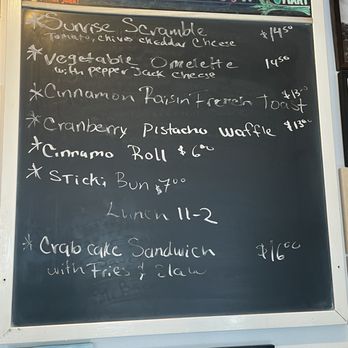 * Sunrise Scramble $14.50
Tomato, chives cheddar cheese
* Vegetable Omelette 14.50
with pepper Jack cheese
* Cinnamon Raisin French Toast
* Cranberry Pistachio waffle $13.00
* Cinnamo Roll $6.00
* Sticki Bun $7.00
Lunch 11-2
* Crab cake Sandwich $16.00
with Fries & Slaw